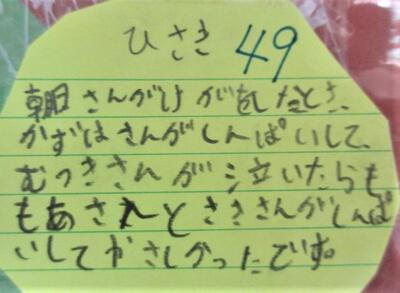 ひさき 49
朝日さんがけがをしたとき、
かずはさんがしんぱいして、
むつきさんが泣いたらも
もあさんとささきさんがしんぱ
いしてやさしかったです。